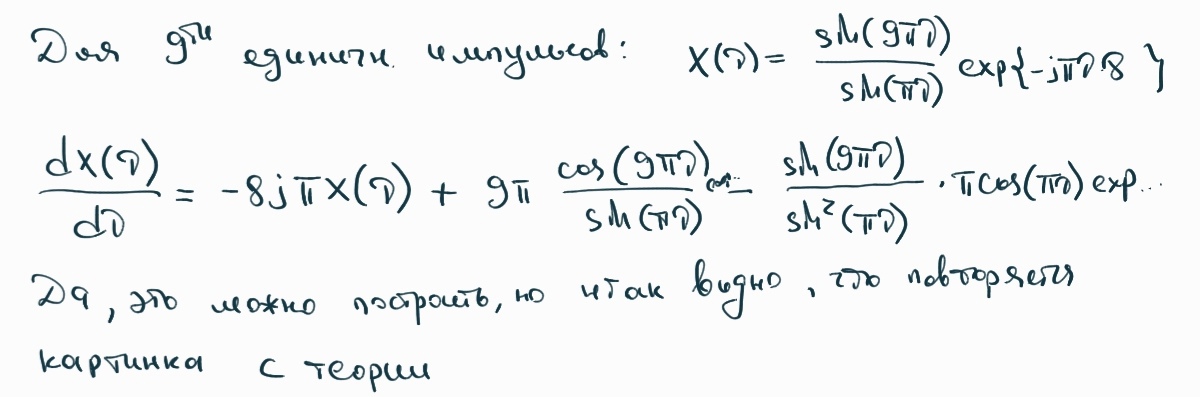 Для 9ти единичн. импульсов: X(ν) = sin(9πν)/sin(πν) exp{-jπν8}
dX(ν)/dν = -8jπX(ν) + 9π cos(9πν)/sin(πν) exp... - sin(9πν)/sin²(πν) · πcos(πν) exp...
Да, это можно построить, но итак видно, что повторяется
картинка с теории